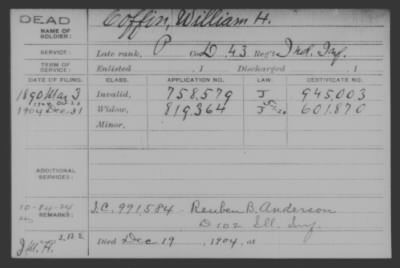 DEAD
NAME OF SOLDIER: Coffin, William H.
SERVICE: Late rank, P Co. D, 43 Reg't Ind. Inf.
TERM OF SERVICE: Enlisted , 1 Discharged , 1
DATE OF FILING. CLASS. APPLICATION NO. LAW. CERTIFICATE NO.
1890 May 3 Invalid, 758,579 J 945,003
1904 Dec. 31 Widow, 819,364 J 601,870
Minor,
ADDITIONAL SERVICES:
10-84-24 I.C. 991,584 - Reuben B. Anderson
REMARKS: D 102 Ill. Inf.
J.W.H. Died Dec 19, 1904, at